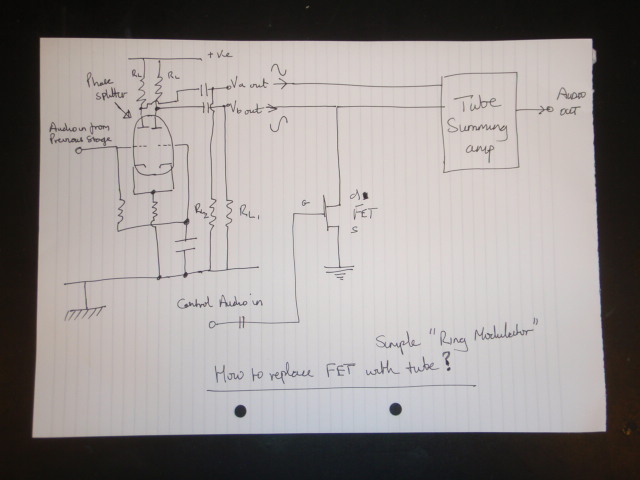 +ve
RL
RL
Phase
splitter
Va out
Vb out
Audio in from
Previous Stage
Tube
Summing
amp
AUDIO
OUT
RL2
RL1
G
d
FET
S
Control Audio in
Simple "Ring Modulator"
How to replace FET with tube?